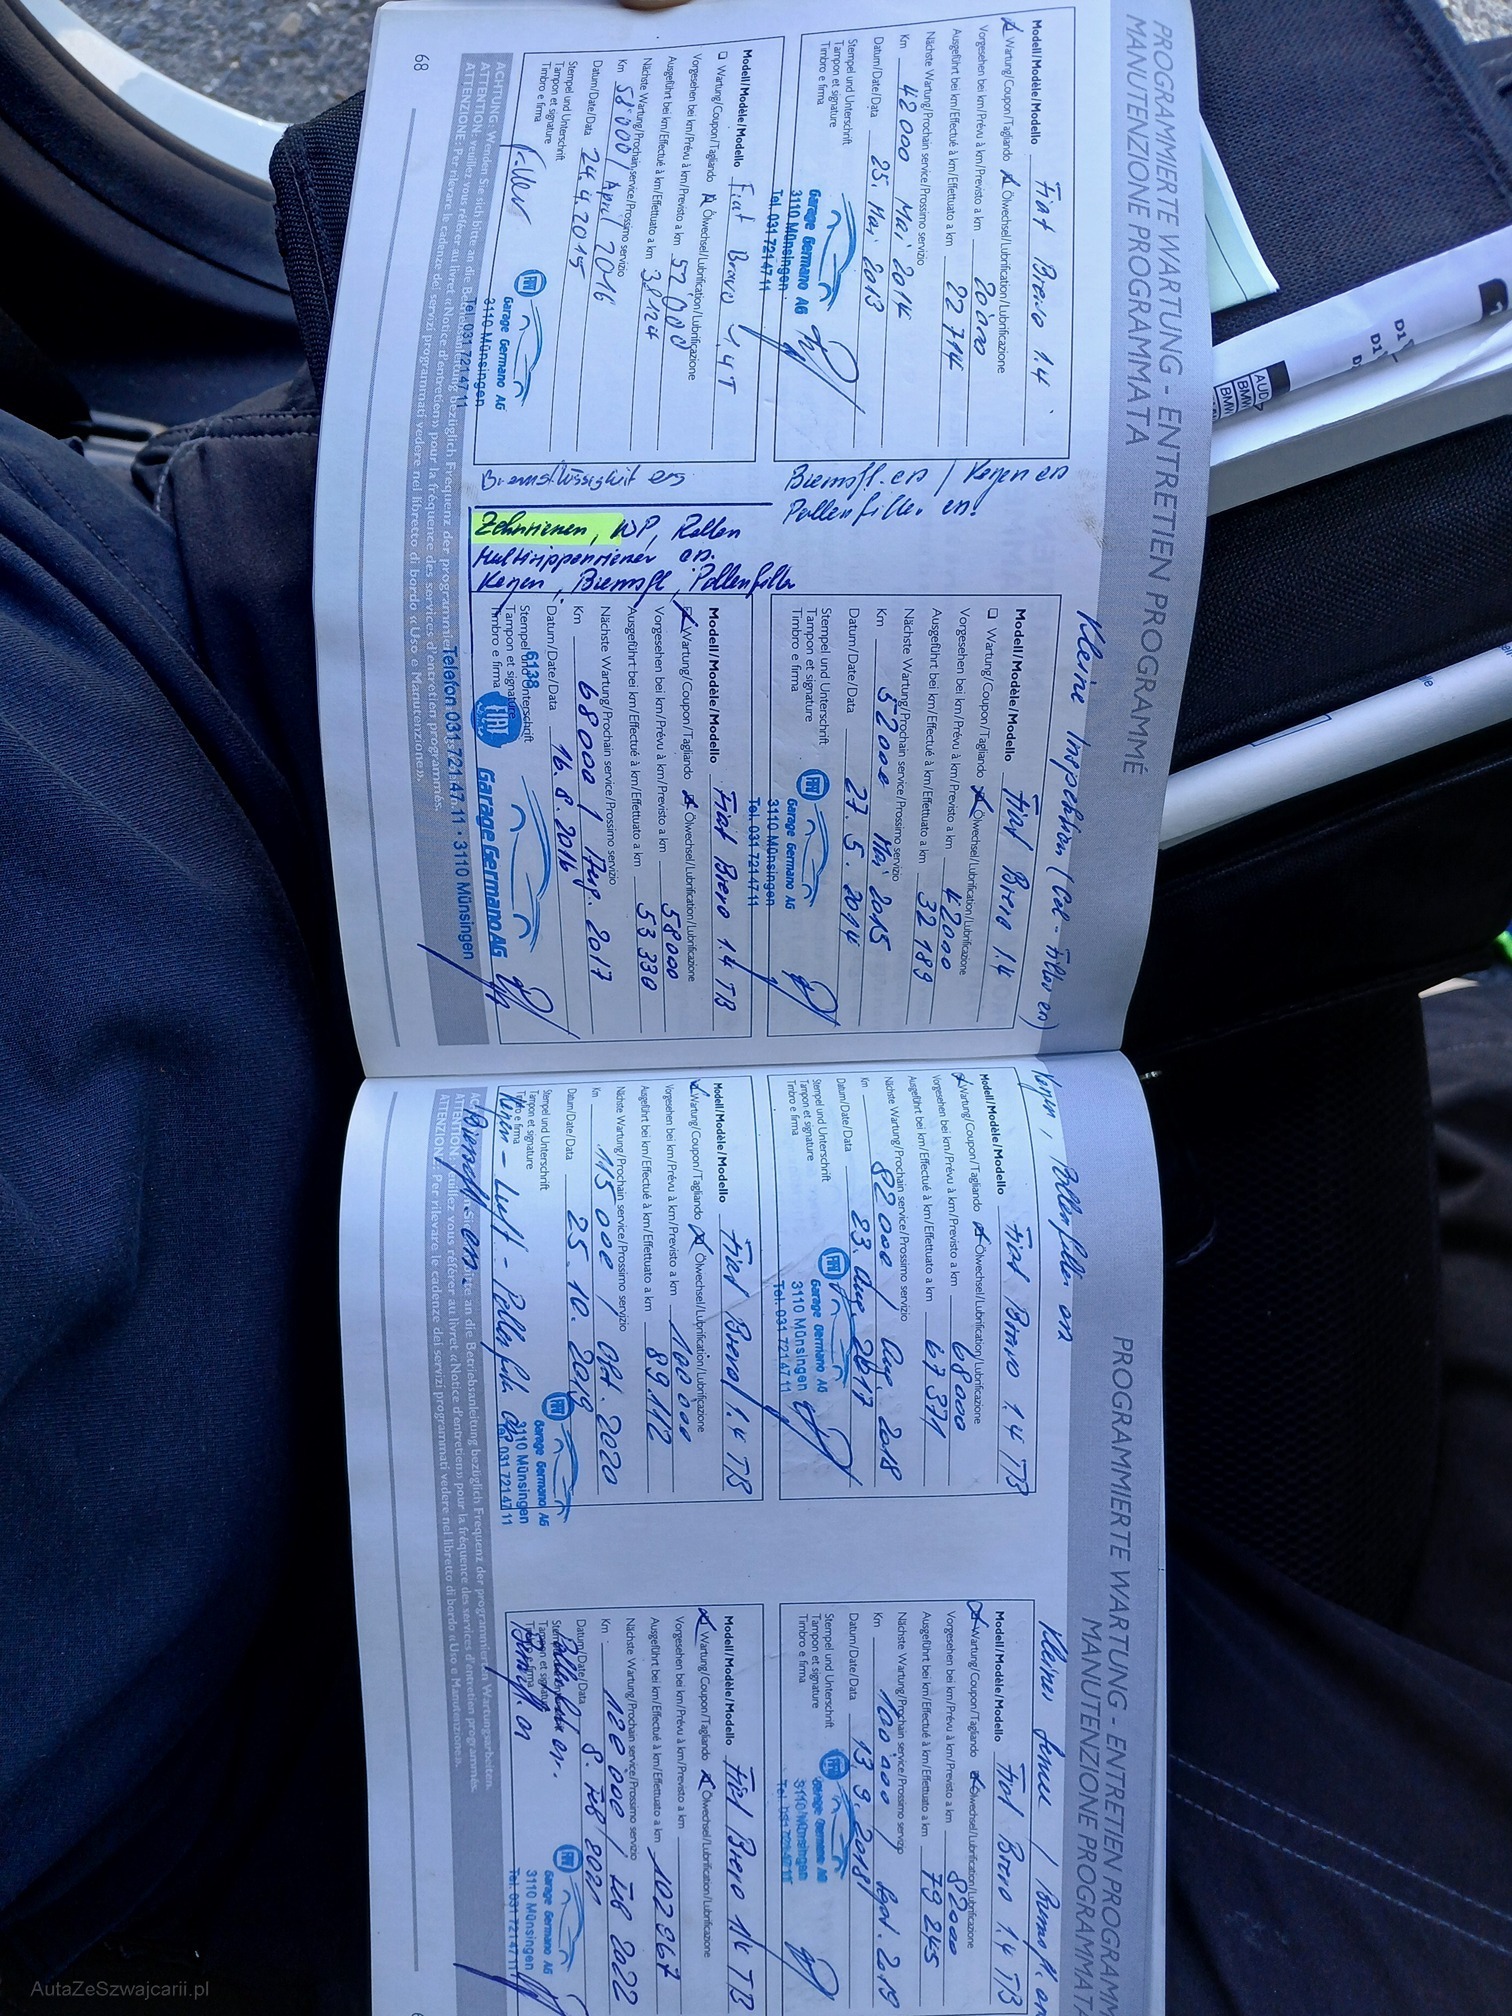 PROGRAMMIERTE WARTUNG - ENTRETIEN PROGRAMMÉ
MANUTENZIONE PROGRAMMATA
Modell/Modèle/Modello Fiat Bravo 1.4
Wartung/Coupon/Tagliando Ölwechsel/Lubrification/Lubrificazione
Vorgesehen bei km/Prévu à km/Previsto a km 20'000
Ausgeführt bei km/Effectué à km/Effettuato a km 22 714
Nächste Wartung/Prochain service/Prossimo servizio
Km 42 000 Mai 2014
Datum/Date/Data 25. Mai 2013
Stempel und Unterschrift
Tampon et signature
Timbro e firma
Garage Germano AG
3110 Münsingen
Tel. 031 721 47 11
Bremsfl. en / Kerzen en
Pollenfilter en.
Kleine Inspektion
Modell/Modèle/Modello Fiat Bravo 1.4
Wartung/Coupon/Tagliando Ölwechsel/Lubrification/Lubrificazione
Vorgesehen bei km/Prévu à km/Previsto a km 42000
Ausgeführt bei km/Effectué à km/Effettuato a km 32 189
Nächste Wartung/Prochain service/Prossimo servizio
Km 52000 Mai 2015
Datum/Date/Data 27. 5. 2014
Stempel und Unterschrift
Tampon et signature
Timbro e firma
Garage Germano AG
3110 Münsingen
Tel. 031 721 47 11
Modell/Modèle/Modello Fiat Bravo 1,4T
Wartung/Coupon/Tagliando Ölwechsel/Lubrification/Lubrificazione
Vorgesehen bei km/Prévu à km/Previsto a km 52 000
Ausgeführt bei km/Effectué à km/Effettuato a km
Nächste Wartung/Prochain service/Prossimo servizio
Km 58'000 / April 2016
Datum/Date/Data 24.4.2015
Stempel und Unterschrift
Tampon et signature
Timbro e firma
Garage Germano AG
3110 Münsingen
Tel. 031 721 47 11
Bremsflüssigkeit ers
Zahnriemen, WP, Rollen
Multirippenriemen en.
Kerzen, Bremsfl, Pollenfilter
Modell/Modèle/Modello Fiat Bravo 1.4 TB
Wartung/Coupon/Tagliando Ölwechsel/Lubrification/Lubrificazione
Vorgesehen bei km/Prévu à km/Previsto a km 58000
Ausgeführt bei km/Effectué à km/Effettuato a km 53 330
Nächste Wartung/Prochain service/Prossimo servizio
Km 68000 / Aug. 2017
Datum/Date/Data 16. 8. 2016
Stempel und Unterschrift
Tampon et signature
Timbro e firma
6138
FIAT
Garage Germano AG
Telefon 031 721 47 11 · 3110 Münsingen
ACHTUNG: Wenden Sie sich bitte an die Betriebsanleitung bezüglich Frequenz der programmierten
ATTENTION: veuillez vous référer au livret «Notice d'entretien» pour la fréquence des services d'entretien programmés.
ATTENZIONE: Per rilevare le cadenze dei servizi programmati vedere nel libretto di bordo «Uso e Manutenzione».
68
PROGRAMMIERTE WARTUNG - ENTRETIEN PROGRAMM
MANUTENZIONE PROGRAMMATA
Kerzen, Pollenfilter en
Modell/Modèle/Modello Fiat Bravo 1.4 TB
Wartung/Coupon/Tagliando Ölwechsel/Lubrification/Lubrificazione
Vorgesehen bei km/Prévu à km/Previsto a km 68000
Ausgeführt bei km/Effectué à km/Effettuato a km 67 371
Nächste Wartung/Prochain service/Prossimo servizio
Km 82000 / Aug. 2018
Datum/Date/Data 23. Aug. 2017
Stempel und Unterschrift
Tampon et signature
Timbro e firma
Garage Germano AG
3110 Münsingen
Tel. 031 721 47 11
Kleiner / Bremsfl. en
Modell/Modèle/Modello Fiat Bravo 1.4 TB
Wartung/Coupon/Tagliando Ölwechsel/Lubrification/Lubrificazione
Vorgesehen bei km/Prévu à km/Previsto a km 82000
Ausgeführt bei km/Effectué à km/Effettuato a km 79 245
Nächste Wartung/Prochain service/Prossimo servizio
Km 100'000 / Sept. 2019
Datum/Date/Data 13. 9. 2018
Stempel und Unterschrift
Tampon et signature
Timbro e firma
Garage Germano AG
3110 Münsingen
Tel. 031 721 47 11
Modell/Modèle/Modello Fiat Bravo 1.4 TB
Wartung/Coupon/Tagliando Ölwechsel/Lubrification/Lubrificazione
Vorgesehen bei km/Prévu à km/Previsto a km 100 000
Ausgeführt bei km/Effectué à km/Effettuato a km 89.112
Nächste Wartung/Prochain service/Prossimo servizio
Km 115 000 / Okt. 2020
Datum/Date/Data 25. 10. 2019
Stempel und Unterschrift
Tampon et signature
Timbro e firma
Kerzen - Luft - Pollenfilter
Bremsfl. en
Garage Germano AG
3110 Münsingen
Tel. 031 721 47 11
Modell/Modèle/Modello Fiat Bravo 1.4 TB
Wartung/Coupon/Tagliando Ölwechsel/Lubrification/Lubrificazione
Vorgesehen bei km/Prévu à km/Previsto a km
Ausgeführt bei km/Effectué à km/Effettuato a km 102 867
Nächste Wartung/Prochain service/Prossimo servizio
Km 120 000 / Feb 2022
Datum/Date/Data 8. Feb 2021
Stempel und Unterschrift
Tampon et signature
Timbro e firma
Pollenfilter en.
Bremsfl. en
Garage Germano AG
3110 Münsingen
Tel. 031 721 47 11
Sie sich bitte an die Betriebsanleitung bezüglich Frequenz der programmierten Wartungsarbeiten.
ATTENTION: veuillez vous référer au livret «Notice d'entretien» pour la fréquence des services d'entretien programmés.
ATTENZIONE: Per rilevare le cadenze dei servizi programmati vedere nel libretto di bordo «Uso e Manutenzione».
D1
D1
AUD
BMW
BMW
AutaZeSzwajcarii.pl